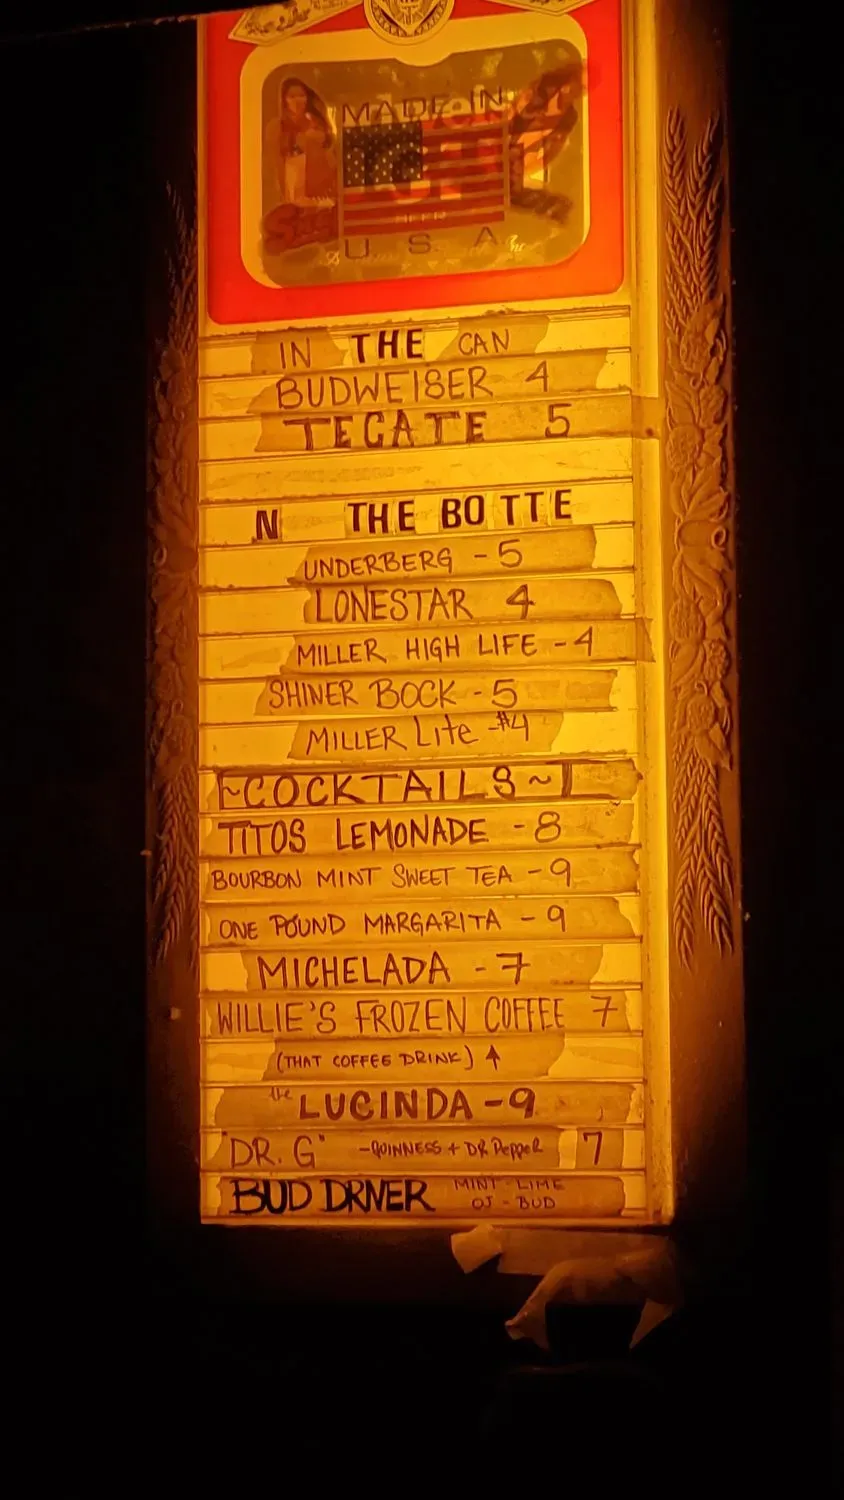 MADE IN
BEER
U S A
IN THE CAN
BUDWEISER 4
TECATE 5
N THE BOTTE
UNDERBERG - 5
LONESTAR 4
MILLER HIGH LIFE - 4
SHINER BOCK - 5
MILLER Lite - #4
~COCKTAILS~
TITOS LEMONADE - 8
BOURBON MINT SWEET TEA - 9
ONE POUND MARGARITA - 9
MICHELADA - 7
WILLIE'S FROZEN COFFEE 7
(THAT COFFEE DRINK) ↑
the LUCINDA - 9
"DR. G" - GUINNESS + DR PeppeR 7
BUD DRIVER MINT - LIME
OJ - BUD